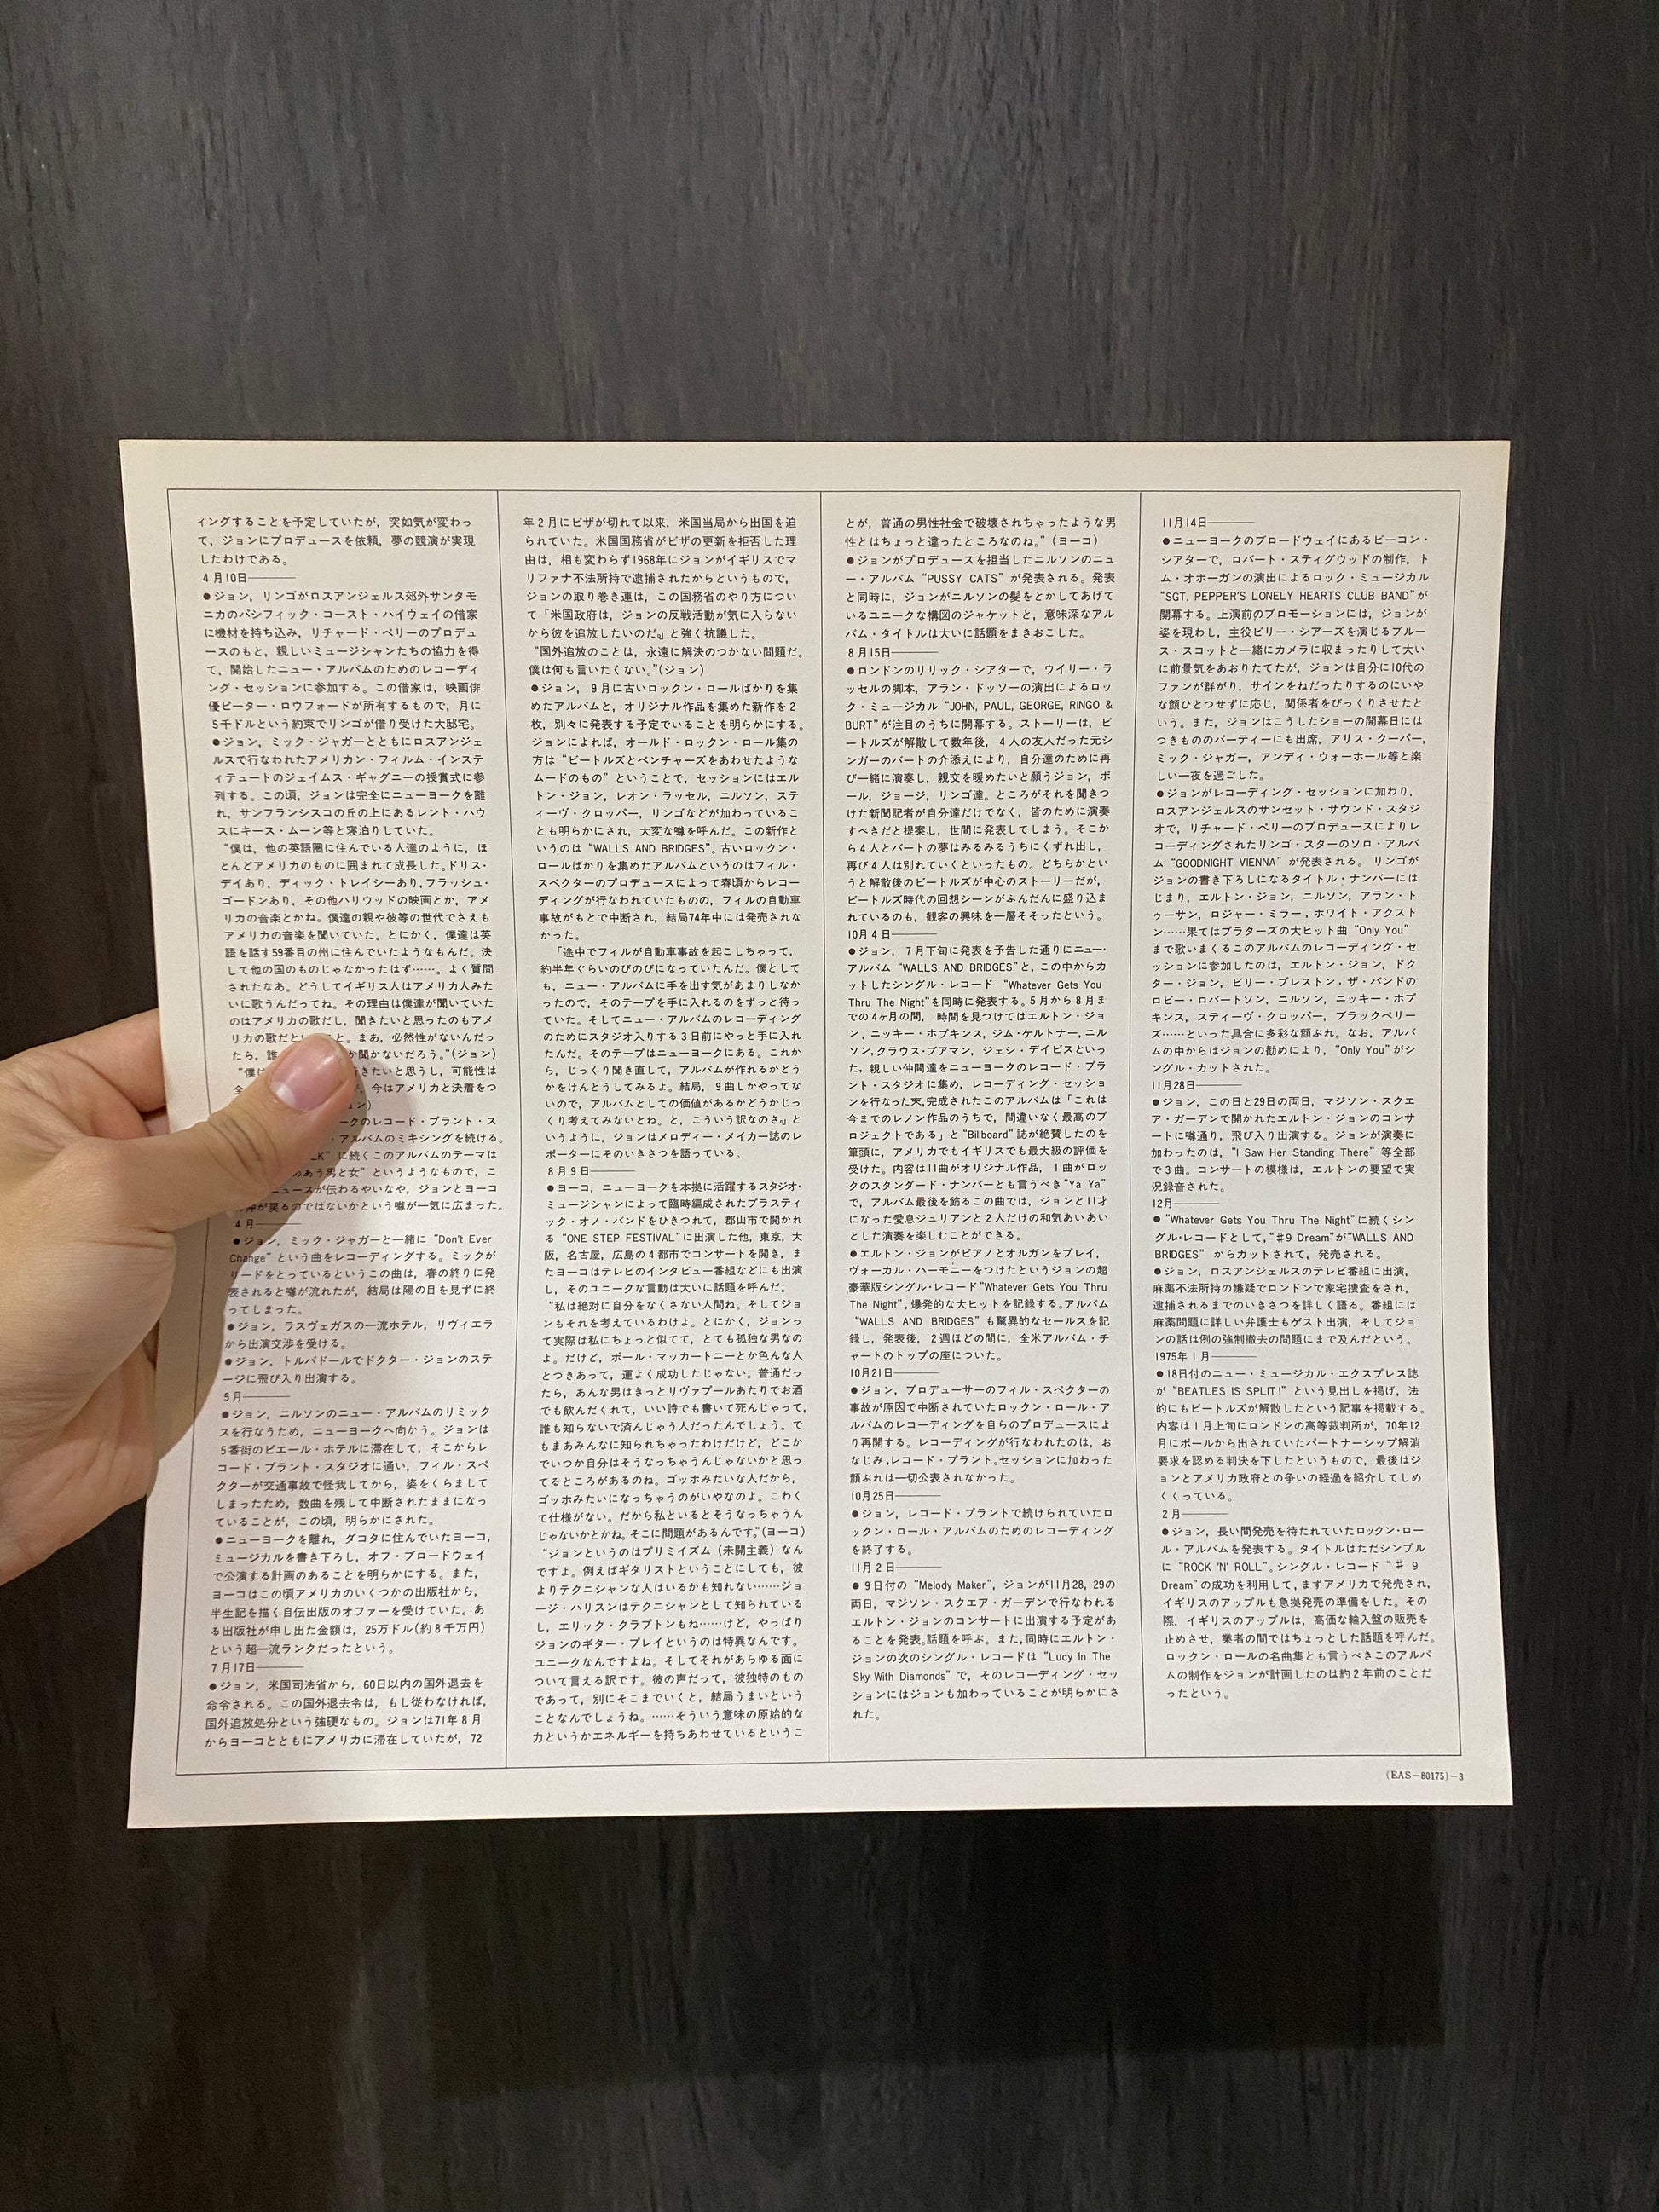 ィングすることを予定していたが，突如気が変わっ
て，ジョンにプロデュースを依頼，夢の競演が実現
したわけである。
4月10日────
●ジョン，リンゴがロスアンジェルス郊外サンタモ
ニカのパシフィック・コースト・ハイウェイの借家
に機材を持ち込み，リチャード・ペリーのプロデュ
ースのもと，親しいミュージシャンたちの協力を得
て，開始したニュー・アルバムのためのレコーディ
ング・セッションに参加する。この借家は，映画俳
優ピーター・ロウフォードが所有するもので，月に
5千ドルという約束でリンゴが借り受けた大邸宅。
●ジョン，ミック・ジャガーとともにロスアンジェ
ルスで行なわれたアメリカン・フィルム・インステ
ィテュートのジェイムス・ギャグニーの授賞式に参
列する。この頃，ジョンは完全にニューヨークを離
れ，サンフランシスコの丘の上にあるレント・ハウ
スにキース・ムーン等と寝泊りしていた。
“僕は，他の英語圏に住んでいる人達のように，ほ
とんどアメリカのものに囲まれて成長した。ドリス・
デイあり，ディック・トレイシーあり，フラッシュ・
ゴードンあり，その他ハリウッドの映画とか，アメ
リカの音楽とかね。僕達の親や彼等の世代でさえも
アメリカの音楽を聞いていた。とにかく，僕達は英
語を話す59番目の州に住んでいたようなもんだ。決
して他の国のものじゃなかったはず……。よく質問
されたなあ。どうしてイギリス人はアメリカ人みた
いに歌うんだってね。その理由は僕達が聞いていた
のはアメリカの歌だし，聞きたいと思ったのもアメ
リカの歌だと と。まあ，必然性がないんだっ
たら，誰 か聞かないだろう。”(ジョン)
“僕は きたいと思うし，可能性は
全 今はアメリカと決着をつ
ン)
ークのレコード・プラント・ス
・アルバムのミキシングを続ける。
に続くこのアルバムのテーマは
あう男と女”というようなもので，こ
ニュースが伝わるやいなや，ジョンとヨーコ
仲が戻るのではないかという噂が一気に広まった。
4月────
●ジョン，ミック・ジャガーと一緒に “Don't Ever
Change” という曲をレコーディングする。ミックが
リードをとっているというこの曲は，春の終りに発
表されると噂が流れたが，結局は陽の目を見ずに終
ってしまった。
●ジョン，ラスヴェガスの一流ホテル，リヴィエラ
から出演交渉を受ける。
●ジョン，トルバドールでドクター・ジョンのステ
ージに飛び入り出演する。
5月────
●ジョン，ニルソンのニュー・アルバムのリミック
スを行なうため，ニューヨークへ向かう。ジョンは
5番街のピエール・ホテルに滞在して，そこからレ
コード・プラント・スタジオに通い，フィル・スペ
クターが交通事故で怪我してから，姿をくらまして
しまったため，数曲を残して中断されたままになっ
ていることが，この頃，明らかにされた。
●ニューヨークを離れ，ダコタに住んでいたヨーコ，
ミュージカルを書き下ろし，オフ・ブロードウェイ
で公演する計画のあることを明らかにする。また，
ヨーコはこの頃アメリカのいくつかの出版社から，
半生記を描く自伝出版のオファーを受けていた。あ
る出版社が申し出た金額は，25万ドル(約8千万円)
という超一流ランクだったという。
7月17日────
●ジョン，米国司法省から，60日以内の国外退去を
命令される。この国外退去令は，もし従わなければ，
国外追放処分という強硬なもの。ジョンは71年8月
からヨーコとともにアメリカに滞在していたが，72
年2月にビザが切れて以来，米国当局から出国を迫
られていた。米国国務省がビザの更新を拒否した理
由は，相も変わらず1968年にジョンがイギリスでマ
リファナ不法所持で逮捕されたからというもので，
ジョンの取り巻き連は，この国務省のやり方につい
て「米国政府は，ジョンの反戦活動が気に入らない
から彼を追放したいのだ。」と強く抗議した。
“国外追放のことは，永遠に解決のつかない問題だ。
僕は何も言いたくない。”(ジョン)
●ジョン，9月に古いロックン・ロールばかりを集
めたアルバムと，オリジナル作品を集めた新作を2
枚，別々に発表する予定でいることを明らかにする。
ジョンによれば，オールド・ロックン・ロール集の
方は “ビートルズとベンチャーズをあわせたような
ムードのもの” ということで，セッションにはエル
トン・ジョン，レオン・ラッセル，ニルソン，ステ
ィーヴ・クロッパー，リンゴなどが加わっているこ
とも明らかにされ，大変な噂を呼んだ。この新作と
いうのは “WALLS AND BRIDGES”。古いロックン・
ロールばかりを集めたアルバムというのはフィル・
スペクターのプロデュースによって春頃からレコー
ディングが行なわれていたものの，フィルの自動車
事故がもとで中断され，結局74年中には発売されな
かった。
「途中でフィルが自動車事故を起こしちゃって，
約半年ぐらいのびのびになっていたんだ。僕として
も，ニュー・アルバムに手を出す気があまりしなか
ったので，そのテープを手に入れるのをずっと待っ
ていた。そしてニュー・アルバムのレコーディング
のためにスタジオ入りする3日前にやっと手に入れ
たんだ。そのテープはニューヨークにある。これか
ら，じっくり聞き直して，アルバムが作れるかどう
かをけんとうしてみるよ。結局，9曲しかやってな
いので，アルバムとしての価値があるかどうかじっ
くり考えてみないとね。と，こういう訳なのさ。」と
いうように，ジョンはメロディー・メイカー誌のレ
ポーターにそのいきさつを語っている。
8月9日────
●ヨーコ，ニューヨークを本拠に活躍するスタジオ・
ミュージシャンによって臨時編成されたプラスティ
ック・オノ・バンドをひきつれて，郡山市で開かれ
る “ONE STEP FESTIVAL”に出演した他，東京，大
阪，名古屋，広島の4都市でコンサートを開き，ま
たヨーコはテレビのインタビュー番組などにも出演
し，そのユニークな言動は大いに話題を呼んだ。
“私は絶対に自分をなくさない人間ね。そしてジョ
ンもそれを考えているわけよ。とにかく，ジョンっ
て実際は私にちょっと似てて，とても孤独な男なの
よ。だけど，ポール・マッカートニーとか色んな人
とつきあって，運よく成功したじゃない。普通だっ
たら，あんな男はきっとリヴァプールあたりでお酒
でも飲んだくれて，いい詩でも書いて死んじゃって，
誰も知らないで済んじゃう人だったんでしょう。で
もまあみんなに知られちゃったわけだけど，どこか
でいつか自分はそうなっちゃうんじゃないかと思っ
てるところがあるのね。ゴッホみたいな人だから，
ゴッホみたいになっちゃうのがいやなのよ。こわく
て仕様がない。だから私といるとそうなっちゃうん
じゃないかとかね。そこに問題があるんです。”(ヨーコ)
“ジョンというのはプリミイズム（未開主義）なん
ですよ。例えばギタリストということにしても，彼
よりテクニシャンな人はいるかも知れない……ジョ
ージ・ハリスンはテクニシャンとして知られている
し，エリック・クラプトンもね……けど，やっぱり
ジョンのギター・プレイというのは特異なんです。
ユニークなんですよね。そしてそれがあらゆる面に
ついて言える訳です。彼の声だって，彼独特のもの
であって，別にそこまでいくと，結局うまいという
ことなんでしょうね。……そういう意味の原始的な
力というかエネルギーを持ちあわせているというこ
とが，普通の男性社会で破壊されちゃったような男
性とはちょっと違ったところなのね。”(ヨーコ)
●ジョンがプロデュースを担当したニルソンのニュ
ー・アルバム “PUSSY CATS” が発表される。発表
と同時に，ジョンがニルソンの髪をとかしてあげて
いるユニークな構図のジャケットと，意味深なアル
バム・タイトルは大いに話題をまきおこした。
8月15日────
●ロンドンのリリック・シアターで，ウイリー・ラ
ッセルの脚本，アラン・ドッソーの演出によるロッ
ク・ミュージカル “JOHN, PAUL, GEORGE, RINGO &
BURT”が注目のうちに開幕する。ストーリーは，ビ
ートルズが解散して数年後，4人の友人だった元シ
ンガーのバートの介添えにより，自分達のために再
び一緒に演奏し，親交を暖めたいと願うジョン，ポ
ール，ジョージ，リンゴ達。ところがそれを聞きつ
けた新聞記者が自分達だけでなく，皆のために演奏
すべきだと提案し，世間に発表してしまう。そこか
ら4人とバートの夢はみるみるうちにくずれ出し，
再び4人は別れていくといったもの。どちらかとい
うと解散後のビートルズが中心のストーリーだが，
ビートルズ時代の回想シーンがふんだんに盛り込ま
れているのも，観客の興味を一層そそったという。
10月4日────
●ジョン，7月下旬に発表を予告した通りにニュー・
アルバム “WALLS AND BRIDGES”と，この中からカ
ットしたシングル・レコード “Whatever Gets You
Thru The Night”を同時に発表する。5月から8月ま
での4ヶ月の間，時間を見つけてはエルトン・ジョ
ン，ニッキー・ホプキンス，ジム・ケルトナー，ニル
ソン，クラウス・ブアマン，ジェシ・デイビスといっ
た，親しい仲間達をニューヨークのレコード・プラ
ント・スタジオに集め，レコーディング・セッショ
ンを行なった末，完成されたこのアルバムは「これは
今までのレノン作品のうちで，間違いなく最高のプ
ロジェクトである」と “Billboard” 誌が絶賛したのを
筆頭に，アメリカでもイギリスでも最大級の評価を
受けた。内容は11曲がオリジナル作品，1曲がロッ
クのスタンダード・ナンバーとも言うべき “Ya Ya”
で，アルバム最後を飾るこの曲では，ジョンと11才
になった愛息ジュリアンと2人だけの和気あいあい
とした演奏を楽しむことができる。
●エルトン・ジョンがピアノとオルガンをプレイ，
ヴォーカル・ハーモニーをつけたというジョンの超
豪華版シングル・レコード “Whatever Gets You Thru
The Night”，爆発的な大ヒットを記録する。アルバム
“WALLS AND BRIDGES” も驚異的なセールスを記
録し，発表後，2週ほどの間に，全米アルバム・チ
ャートのトップの座についた。
10月21日────
●ジョン，プロデューサーのフィル・スペクターの
事故が原因で中断されていたロックン・ロール・ア
ルバムのレコーディングを自らのプロデュースによ
り再開する。レコーディングが行なわれたのは，お
なじみ，レコード・プラント。セッションに加わった
顔ぶれは一切公表されなかった。
10月25日────
●ジョン，レコード・プラントで続けられていたロ
ックン・ロール・アルバムのためのレコーディング
を終了する。
11月2日────
●9日付の “Melody Maker”，ジョンが11月28, 29の
両日，マジソン・スクエア・ガーデンで行なわれる
エルトン・ジョンのコンサートに出演する予定があ
ることを発表。話題を呼ぶ。また，同時にエルトン・
ジョンの次のシングル・レコードは “Lucy In The
Sky With Diamonds” で，そのレコーディング・セッ
ションにはジョンも加わっていることが明らかにさ
れた。
11月14日────
●ニューヨークのブロードウェイにあるビーコン・
シアターで，ロバート・スティグウッドの制作，ト
ム・オホーガンの演出によるロック・ミュージカル
“SGT. PEPPER'S LONELY HEARTS CLUB BAND”が
開幕する。上演前のプロモーションには，ジョンが
姿を現わし，主役ビリー・シアーズを演じるブルー
ス・スコットと一緒にカメラに収まったりして大い
に前景気をあおりたてたが，ジョンは自分に10代の
ファンが群がり，サインをねだったりするのにいや
な顔ひとつせずに応じ，関係者をびっくりさせたと
いう。また，ジョンはこうしたショーの開幕日には
つきもののパーティーにも出席，アリス・クーパー，
ミック・ジャガー，アンディ・ウォーホール等と楽
しい一夜を過ごした。
●ジョンがレコーディング・セッションに加わり，
ロスアンジェルスのサンセット・サウンド・スタジ
オで，リチャード・ペリーのプロデュースによりレ
コーディングされたリンゴ・スターのソロ・アルバ
ム “GOODNIGHT VIENNA” が発表される。リンゴが
ジョンの書き下ろしになるタイトル・ナンバーには
じまり，エルトン・ジョン，ニルソン，アラン・ト
ゥーサン，ロジャー・ミラー，ホワイト・アクスト
ン……果てはプラターズの大ヒット曲 “Only You”
まで歌いまくるこのアルバムのレコーディング・セ
ッションに参加したのは，エルトン・ジョン，ドク
ター・ジョン，ビリー・プレストン，ザ・バンドの
ロビー・ロバートソン，ニルソン，ニッキー・ホプ
キンス，スティーヴ・クロッパー，ブラックベリー
ズ……といった具合に多彩な顔ぶれ。なお，アルバ
ムの中からはジョンの勧めにより，“Only You”がシ
ングル・カットされた。
11月28日────
●ジョン，この日と29日の両日，マジソン・スクエ
ア・ガーデンで開かれたエルトン・ジョンのコンサ
ートに噂通り，飛び入り出演する。ジョンが演奏に
加わったのは，“I Saw Her Standing There” 等全部
で3曲。コンサートの模様は，エルトンの要望で実
況録音された。
12月────
●“Whatever Gets You Thru The Night”に続くシン
グル・レコードとして，“♯9 Dream”が“WALLS AND
BRIDGES” からカットされて，発売される。
●ジョン，ロスアンジェルスのテレビ番組に出演，
麻薬不法所持の嫌疑でロンドンで家宅捜査をされ，
逮捕されるまでのいきさつを詳しく語る。番組には
麻薬問題に詳しい弁護士もゲスト出演，そしてジョ
ンの話は例の強制撤去の問題にまで及んだという。
1975年1月────
●18日付のニュー・ミュージカル・エクスプレス誌
が “BEATLES IS SPLIT!” という見出しを掲げ，法
的にもビートルズが解散したという記事を掲載する。
内容は1月上旬にロンドンの高等裁判所が，70年12
月にポールから出されていたパートナーシップ解消
要求を認める判決を下したというもので，最後はジ
ョンとアメリカ政府との争いの経過を紹介してしめ
くくっている。
2月────
●ジョン，長い間発売を待たれていたロックン・ロー
ル・アルバムを発表する。タイトルはただシンプル
に “ROCK 'N' ROLL”。シングル・レコード “♯9
Dream” の成功を利用して，まずアメリカで発売され，
イギリスのアップルも急拠発売の準備をした。その
際，イギリスのアップルは，高価な輸入盤の販売を
止めさせ，業者の間ではちょっとした話題を呼んだ。
ロックン・ロールの名曲集とも言うべきこのアルバ
ムの制作をジョンが計画したのは約2年前のことだ
ったという。
(EAS-80175)-3